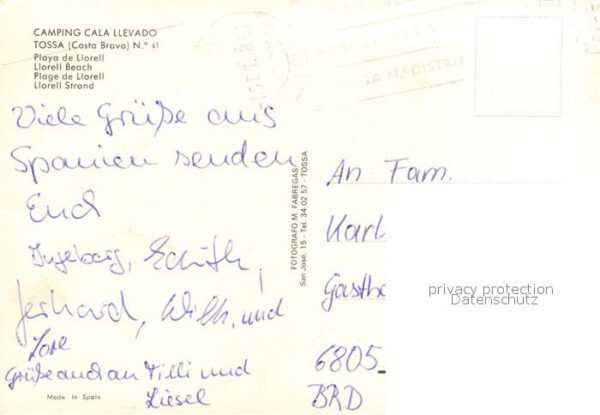 CAMPING CALA LLEVADO
TOSSA (Costa Brava) N.º 41
Playa de Llorell
Llorell Beach
Plage de Llorell
Llorell Strand
Viele Grüße aus
Spanien senden
Euch
Ingeborg, Edith,
Gerhard, Willi, und
Lore
Grüße auch an Willi und
Liesel
Made in Spain
FOTOGRAFO M. FABREGAS
San José, 15 - Tel. 34 02 57 - TOSSA
An Fam.
Karl
Gasthe
6805
BRD
privacy protection
Datenschutz